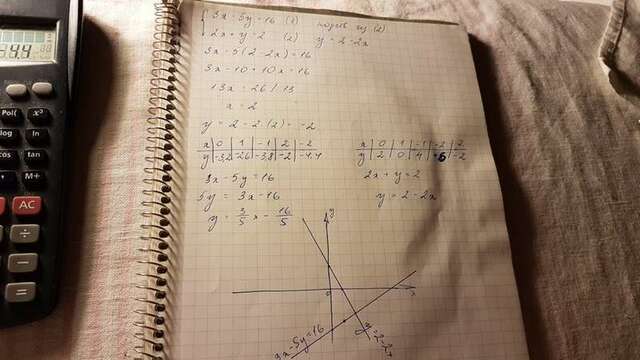 Pol(
x³
log
ln
cos
tan
M+
AC
÷
−
=
3x-5y=16 (1)
2x+y=2 (2) y=2-2x
3x-5(2-2x)=16
3x-10+10x=16
13x=26 |:13
x=2
y=2-2·(2)=-2
x | 0 | 1 | -1 | 2 | -2
y | -3,2 | -2,6 | -3,8 | -2 | -4,4
3x-5y=16
5y=3x-16
y=3/5x-16/5
x | 0 | 1 | -1 | -2 | 2
y | 2 | 0 | 4 | 6 | -2
2x+y=2
y=2-2x
y
0
x
3x-5y=16